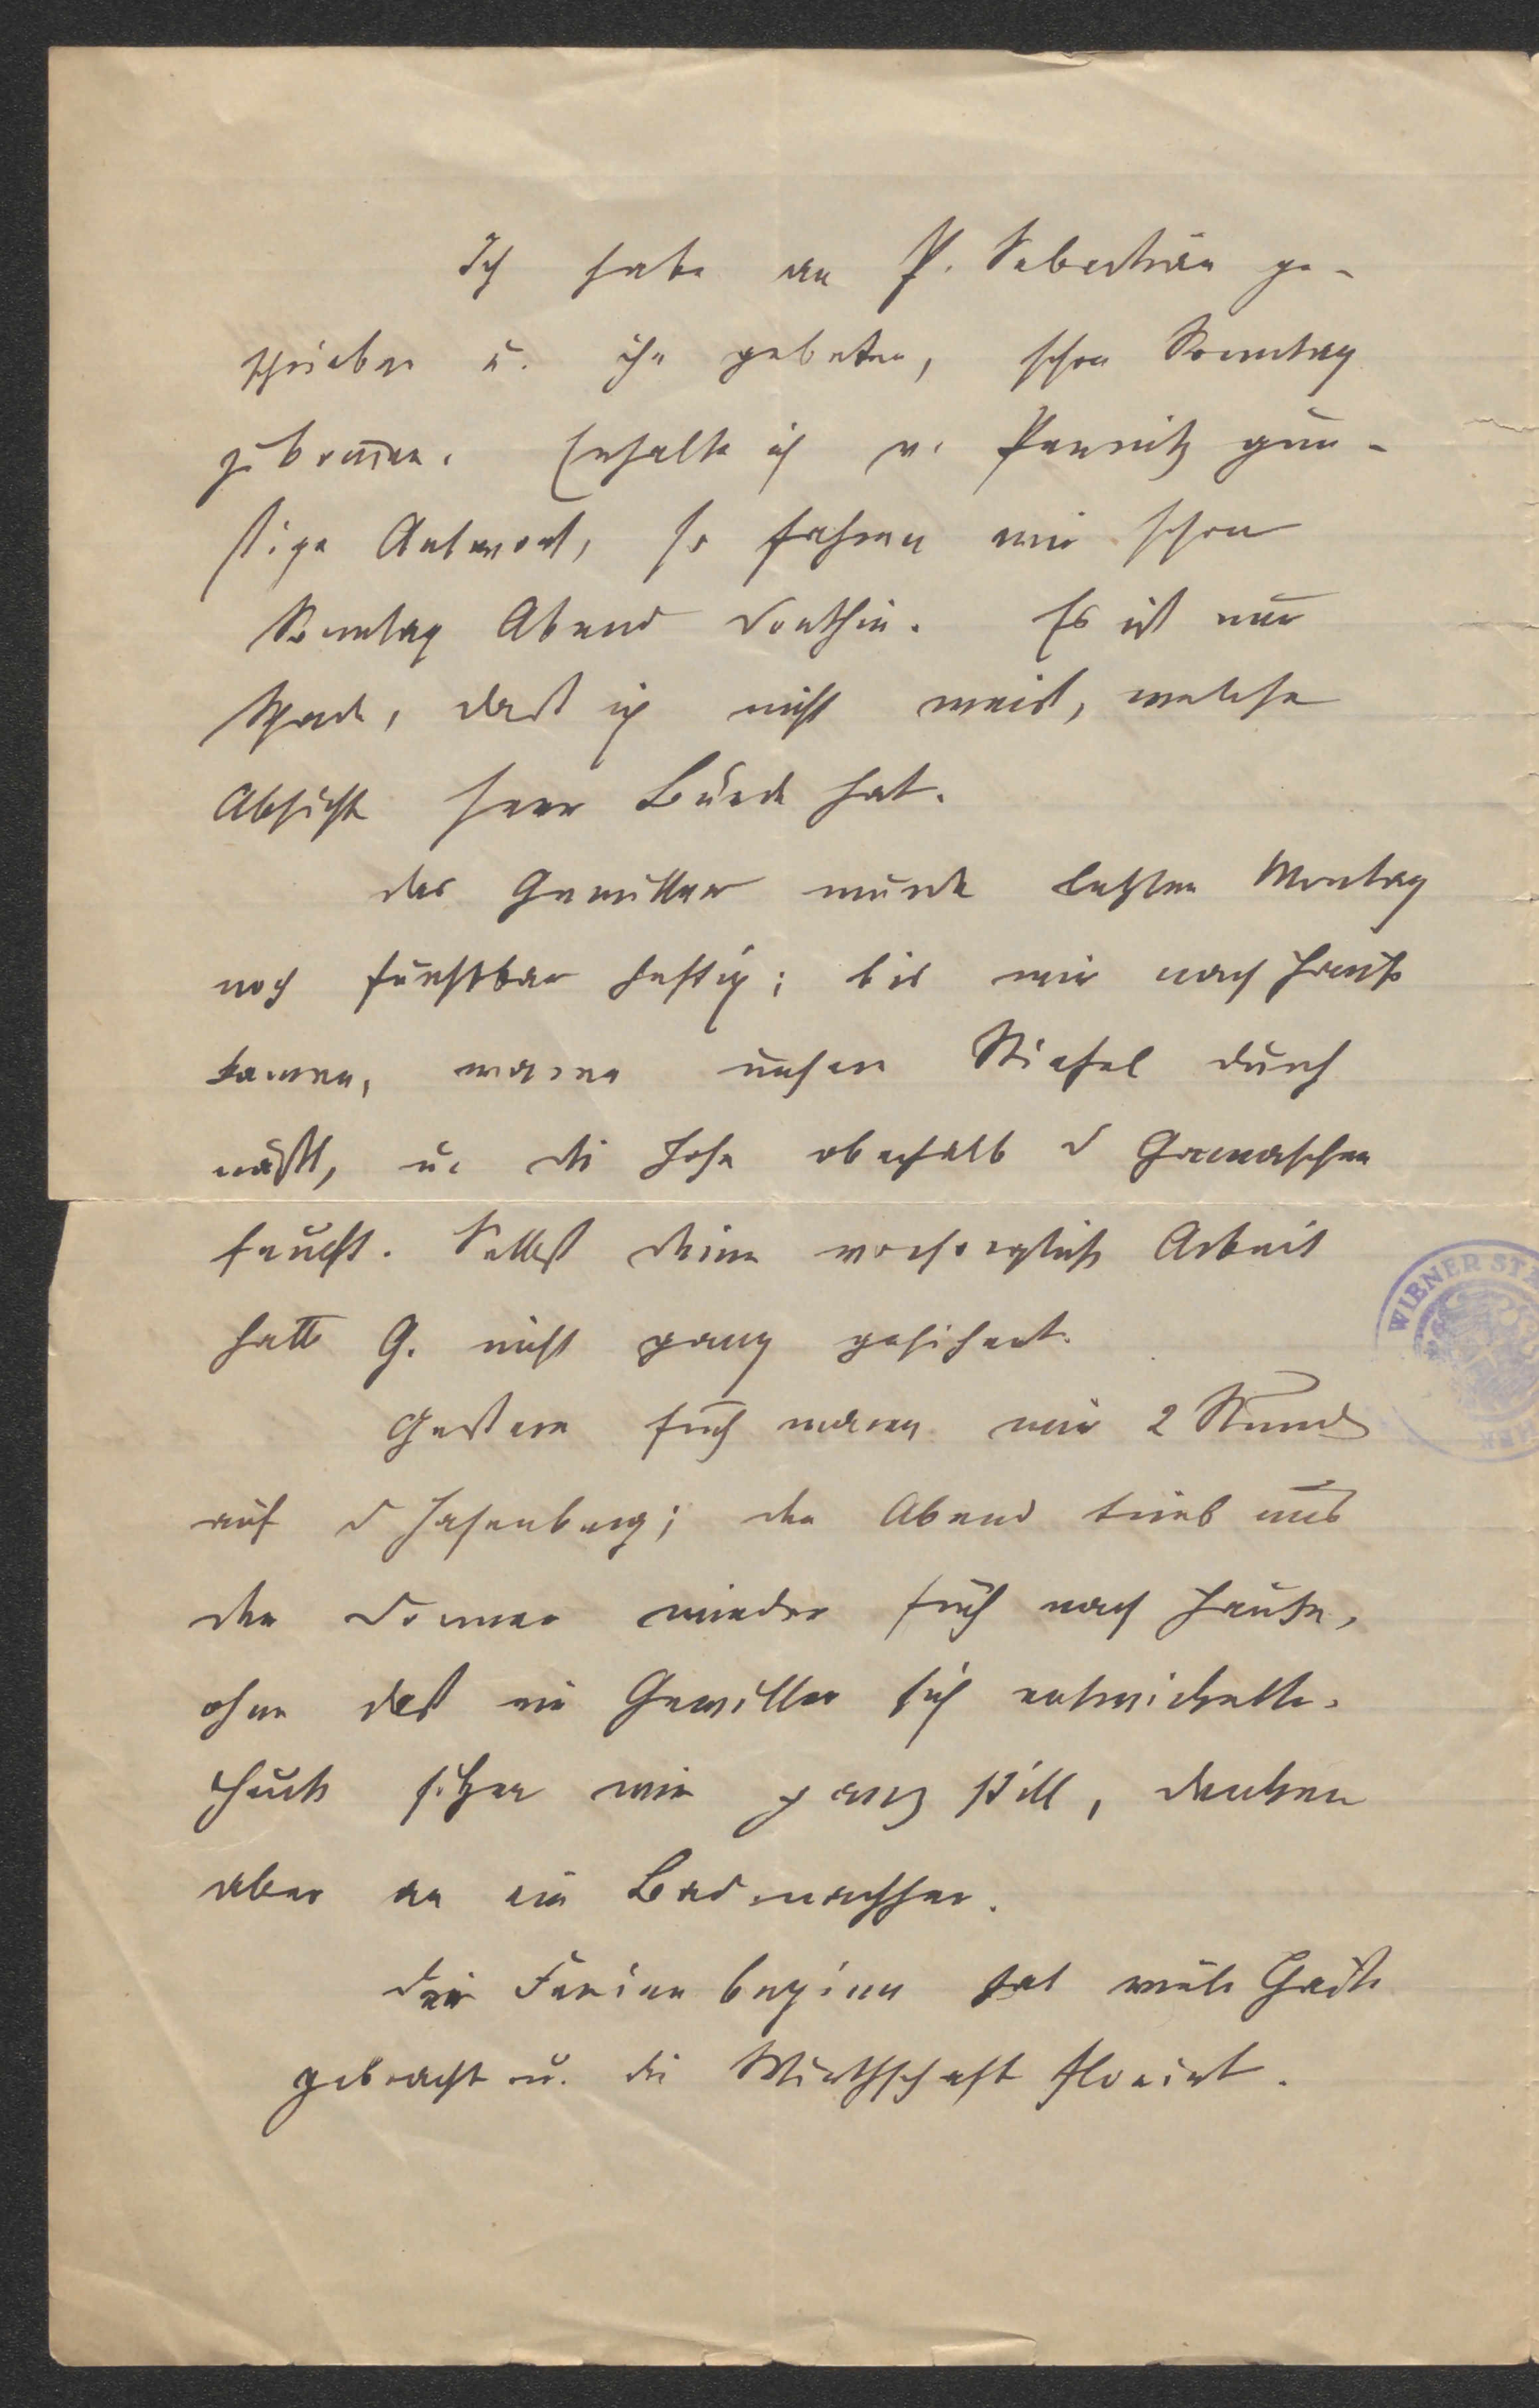 Ich habe an P. Sebastian ge-
schrieben u. ihn gebeten, schon Sonntag
zu kom̅en. Erhalte ich v. Pernitz gün-
stige Antwort, so fahren wir schon
Sonntag Abend dorthin. Es ist nur
schade, dass ich nicht weiss, welche
Absicht Herr Bürde hat.
Das Gewitter wurde letzten Montag
noch furchtbar heftig; bis wir nach Hause
kamen, waren unsere Stiefel durch
nässt, u. die Hose oberhalb d Gamaschen
feucht. Selbst deine vorsorgliche Arbeit
hatte G. nicht ganz gesichert.
Gestern früh waren wir 2 Stund
auf d Hasenberg; den Abend trieb uns
der Donner wieder früh nach Hause,
ohne dass ein Gewitter sich entwickelte.
Heute sitzen wir ganz still, denken
aber an ein Bad nachher.
Der Ferien beginn hat viele Gäste
gebracht u. die Wirthschaft floriert.
WIENER STA